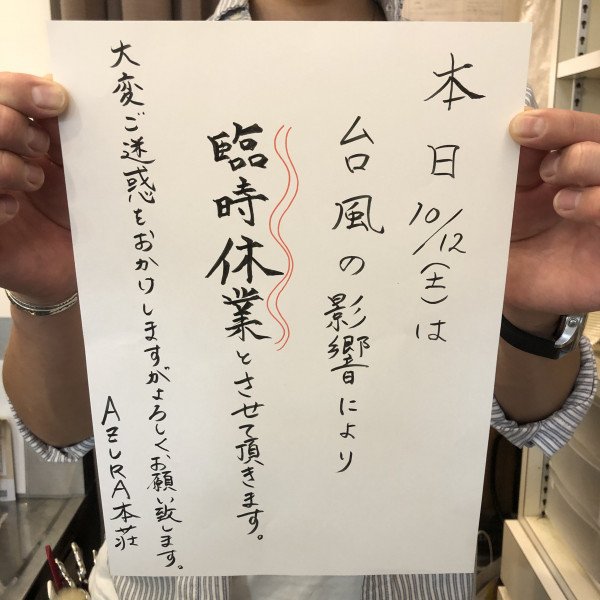 本日10/12(土)は
台風の影響により
臨時休業とさせて頂きます。
大変ご迷惑をおかけしますがよろしく、お願い致します。
AZURA本荘